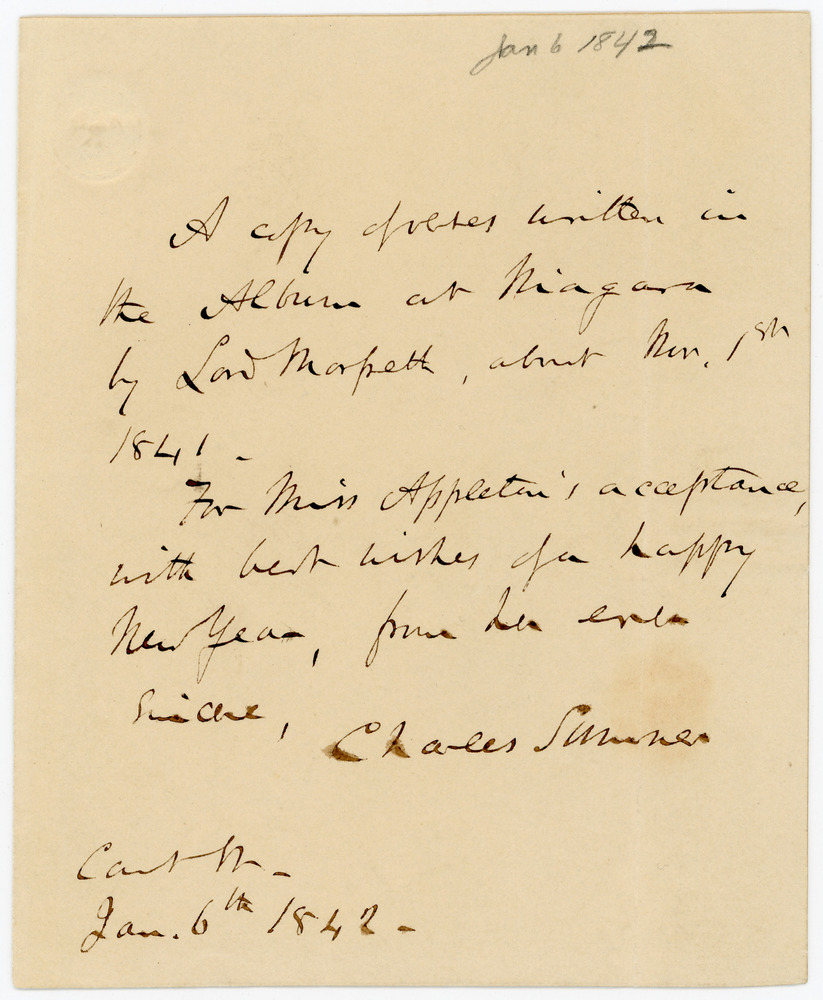 Jan 6 1842
A copy of verses written in
the Album at Niagara
by Lord Morpeth, about Nov. 1st
1841 -
For Miss Appleton's acceptance,
with best wishes of a happy
New Year, from her ever
sincere,
Charles Sumner
Court St -
Jan. 6th 1842 -